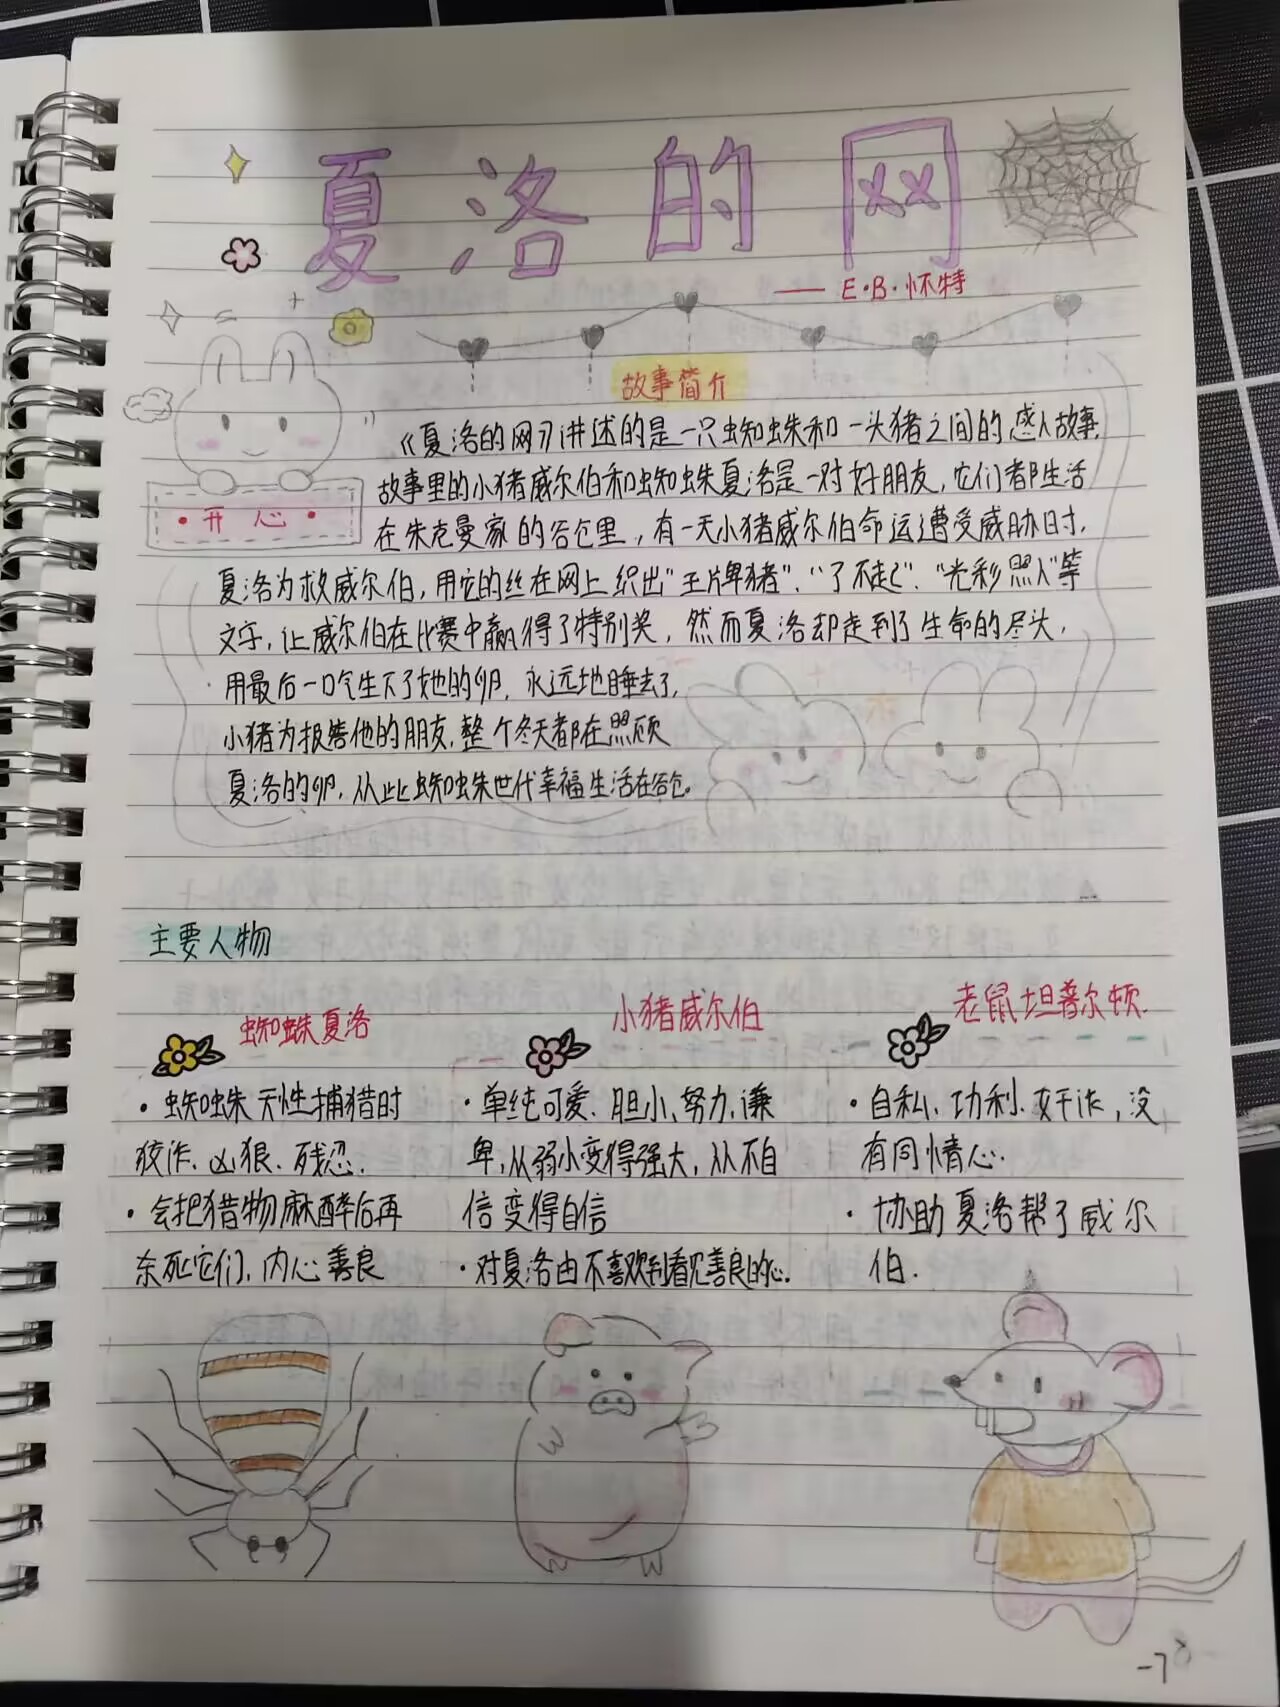 夏洛的网
—— E·B·怀特
故事简介
《夏洛的网》讲述的是一只蜘蛛和一头猪之间的感人故事,
故事里的小猪威尔伯和蜘蛛夏洛是一对好朋友,它们都生活
·开心·
在朱克曼家的谷仓里,有一天小猪威尔伯命运遭受威胁时,
夏洛为救威尔伯,用它的丝在网上织出“王牌猪”、“了不起”、“光彩照人”等
文字,让威尔伯在比赛中赢得了特别奖,然而夏洛却走到了生命的尽头,
用最后一口气生下了她的卵,永远地睡去了,
小猪为报答他的朋友,整个冬天都在照顾
夏洛的卵,从此蜘蛛世代幸福生活在谷仓。
主要人物
蜘蛛夏洛
小猪威尔伯
老鼠坦普尔顿
·蜘蛛天性捕猎时
狡诈、凶狠、残忍.
·会把猎物麻醉后再
杀死它们,内心善良
·单纯可爱、胆小、努力、谦
卑,从弱小变得强大,从不自
信变得自信
·对夏洛由不喜欢到看见善良的心.
·自私、功利、奸诈,没
有同情心.
·协助夏洛帮了威尔
伯.